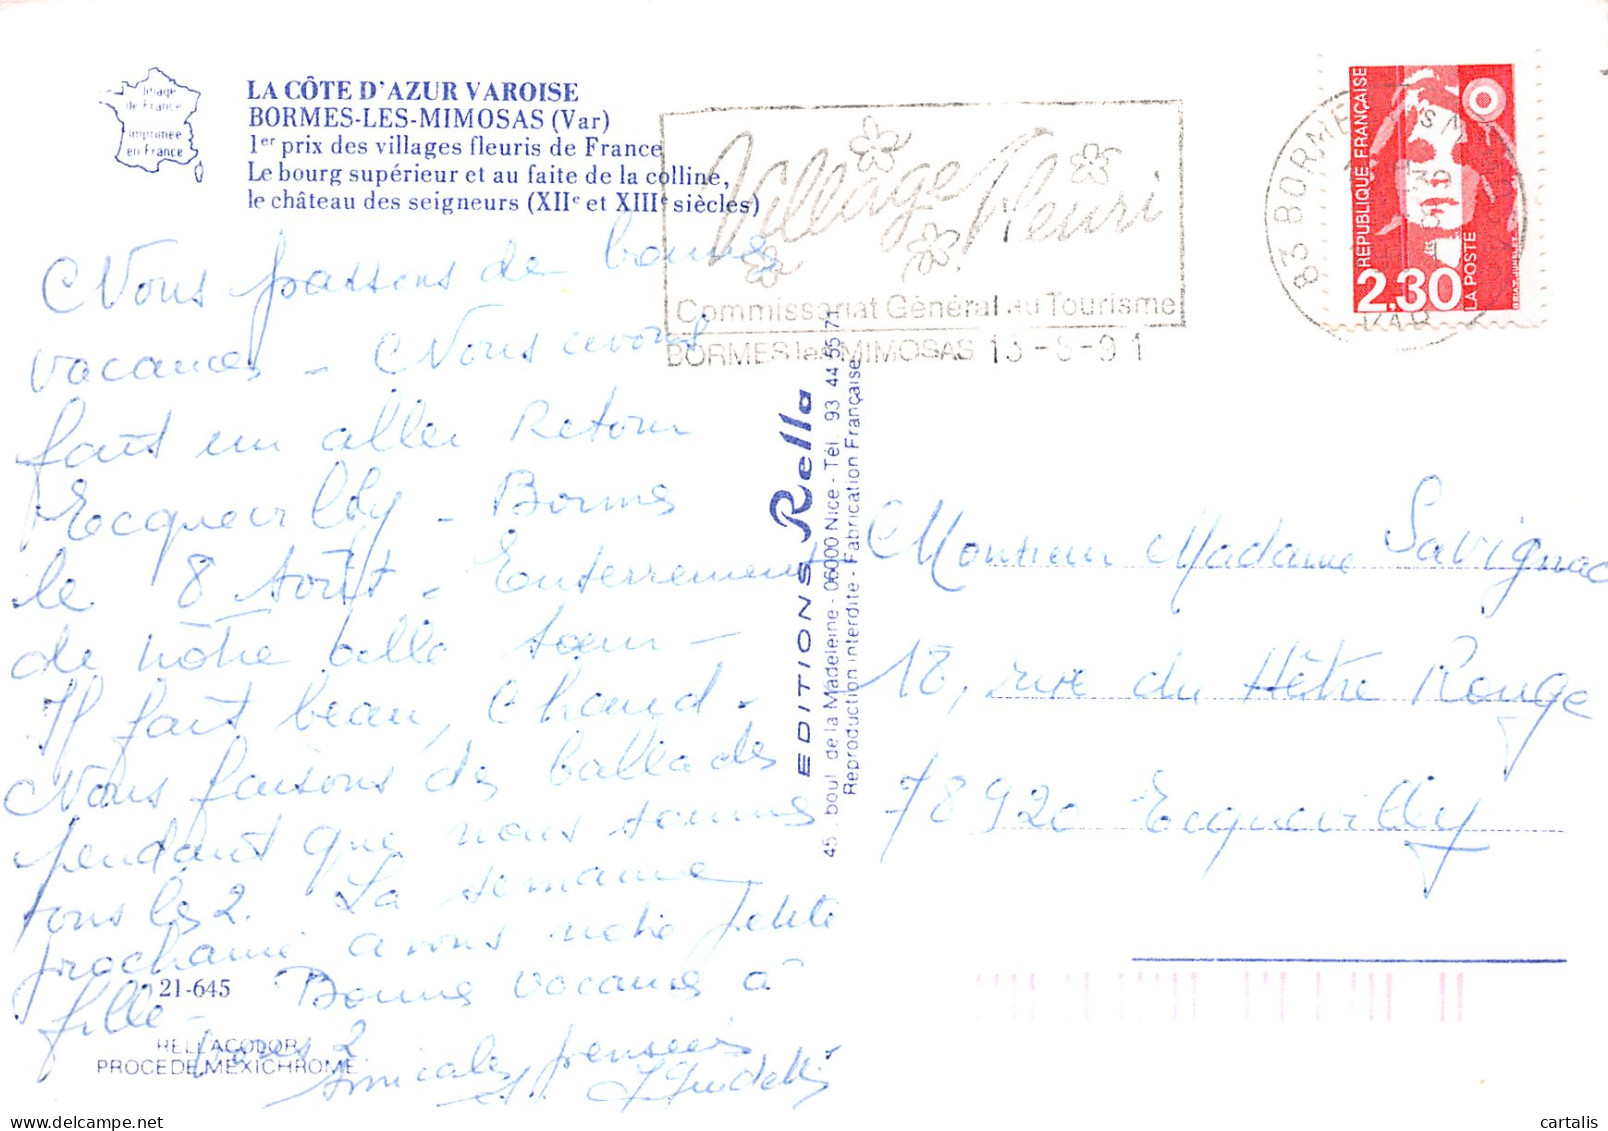 Image
de France
imprimée
en France
LA CÔTE D'AZUR VAROISE
BORMES-LES-MIMOSAS (Var)
1er prix des villages fleuris de France
Le bourg supérieur et au faite de la colline,
le château des seigneurs (XIIe et XIIIe siècles)
Village Fleuri
Commissariat Général au Tourisme
BORMES les MIMOSAS 13-8-91
83 BORMES
VAR
RÉPUBLIQUE FRANÇAISE
2,30
LA POSTE
Nous passons de bonnes
vacances - Nous avons
fait un aller Retour
Ecquevilly - Bormes
le 8 Août - Enterrement
de nôtre belle sœur -
Il fait beau, chaud -
Nous faisons des ballades
pendant que nous sommes
tous les 2. La semaine
prochaine avons notre petite
fille - Bonnes vacances à
vous 2
Amicales pensées
21-645
RELLACOLOR
PROCEDE MEXICHROME
EDITIONS Rella
45, boul de la Madeleine - 06000 Nice - Tél 93 44 55 71
Reproduction interdite - Fabrication Française
Monsieur Madame Savignac
18, rue du Hêtre Rouge
78920 Ecquevilly
cartalis